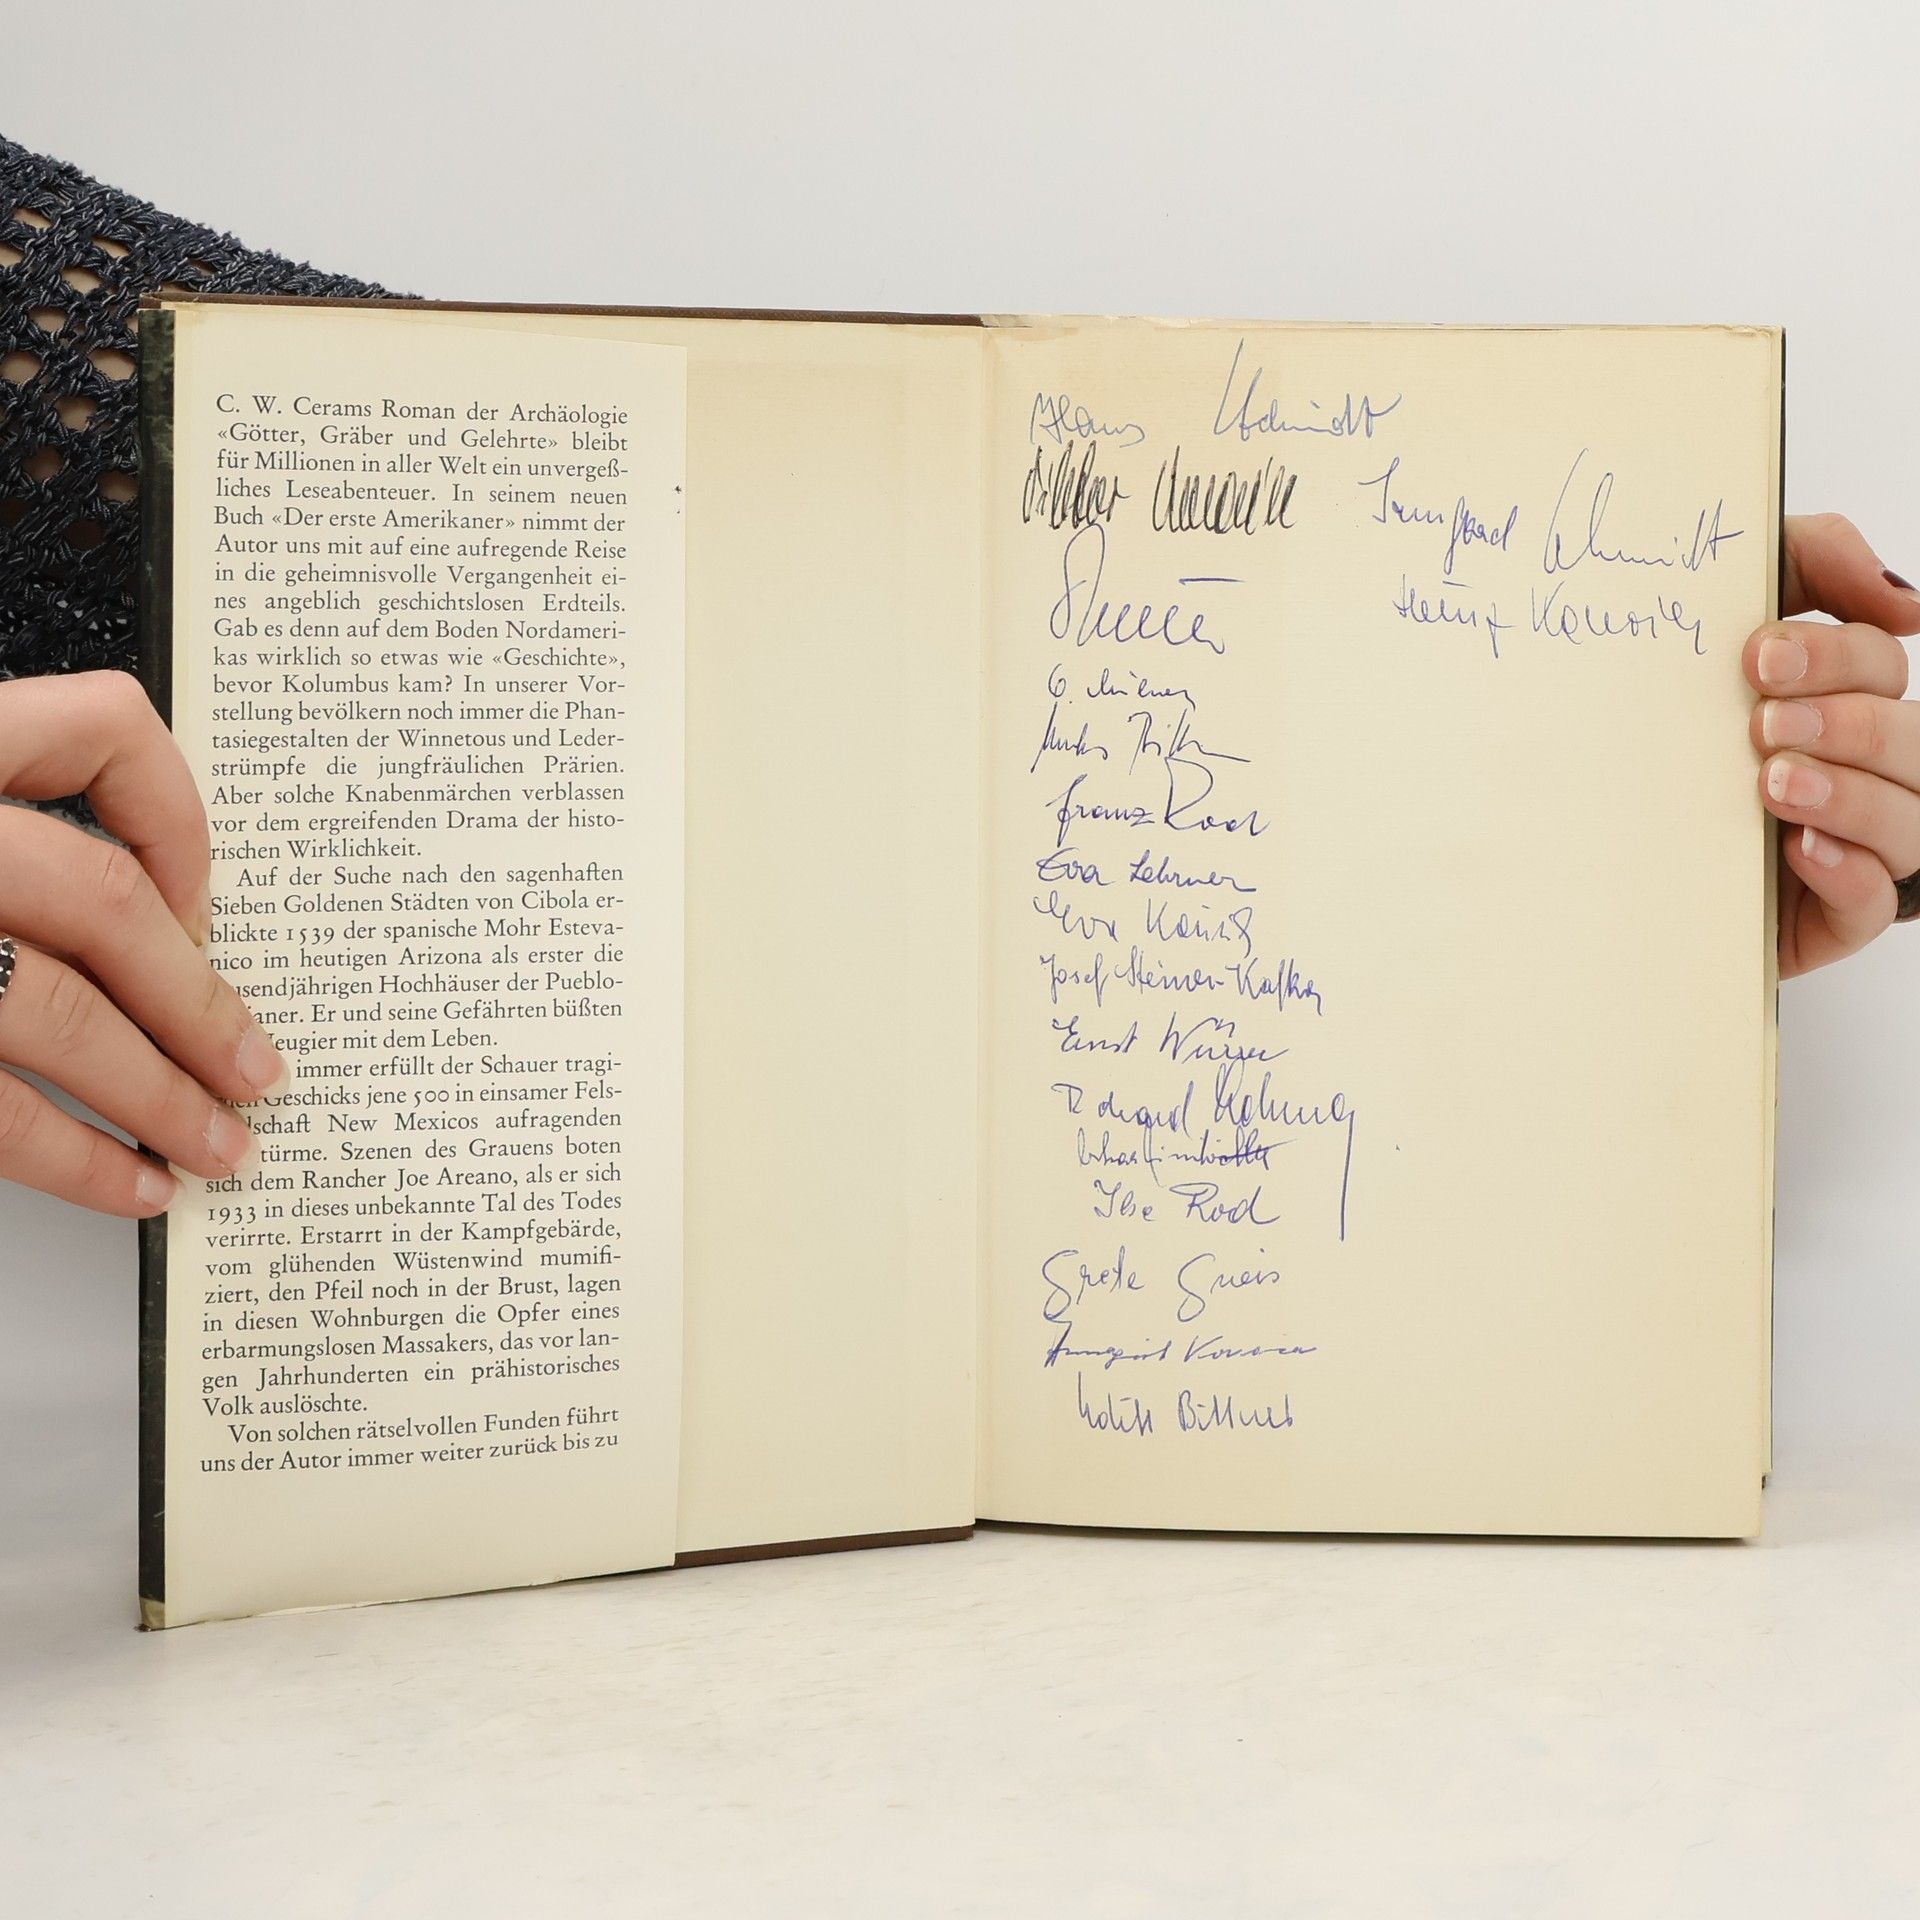 C. W. Cerams Roman der Archäologie
«Götter, Gräber und Gelehrte» bleibt
für Millionen in aller Welt ein unvergeß-
liches Leseabenteuer. In seinem neuen
Buch «Der erste Amerikaner» nimmt der
Autor uns mit auf eine aufregende Reise
in die geheimnisvolle Vergangenheit ei-
nes angeblich geschichtslosen Erdteils.
Gab es denn auf dem Boden Nordameri-
kas wirklich so etwas wie «Geschichte»,
bevor Kolumbus kam? In unserer Vor-
stellung bevölkern noch immer die Phan-
tasiegestalten der Winnetous und Leder-
strümpfe die jungfräulichen Prärien.
Aber solche Knabenmärchen verblassen
vor dem ergreifenden Drama der histo-
rischen Wirklichkeit.
Auf der Suche nach den sagenhaften
Sieben Goldenen Städten von Cibola er-
blickte 1539 der spanische Mohr Esteva-
nico im heutigen Arizona als erster die
usendjährigen Hochhäuser der Pueblo-
ianer. Er und seine Gefährten büßten
eugier mit dem Leben.
immer erfüllt der Schauer tragi-
Geschicks jene 500 in einsamer Fels-
dschaft New Mexicos aufragenden
türme. Szenen des Grauens boten
sich dem Rancher Joe Areano, als er sich
1933 in dieses unbekannte Tal des Todes
verirrte. Erstarrt in der Kampfgebärde,
vom glühenden Wüstenwind mumifi-
ziert, den Pfeil noch in der Brust, lagen
in diesen Wohnburgen die Opfer eines
erbarmungslosen Massakers, das vor lan-
gen Jahrhunderten ein prähistorisches
Volk auslöschte.
Von solchen rätselvollen Funden führt
uns der Autor immer weiter zurück bis zu
Hans Schmidt
Irmgard Schmidt
Heinz
Franz Rod
Eva Lehrner
Eva
Josef Steiner-Kafka
Ernst
Ilse Rod
Grete Gneis
Edith Bittner